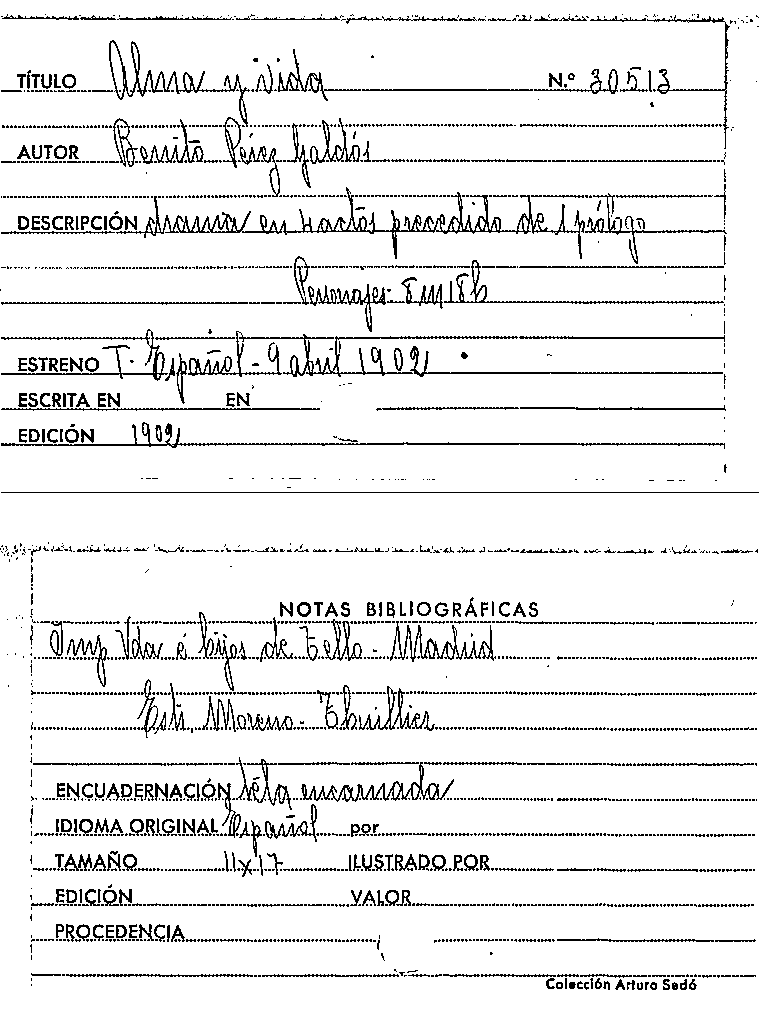 TÍTULO Alma y vida N.º 30513
AUTOR Benito Pérez Galdós
DESCRIPCIÓN drama en 4 actos precedido de 1 prólogo
Personajes - 8 m 18 h
ESTRENO T. Español - 9 abril 1902
ESCRITA EN EN
EDICIÓN 1902
NOTAS BIBLIOGRÁFICAS
Imp Vda é hijos de Tello - Madrid
Estr. Moreno - Thuillier
ENCUADERNACIÓN tela encarnada
IDIOMA ORIGINAL Español por
TAMAÑO 11x17 ILUSTRADO POR
EDICIÓN VALOR
PROCEDENCIA
Colección Arturo Sedó